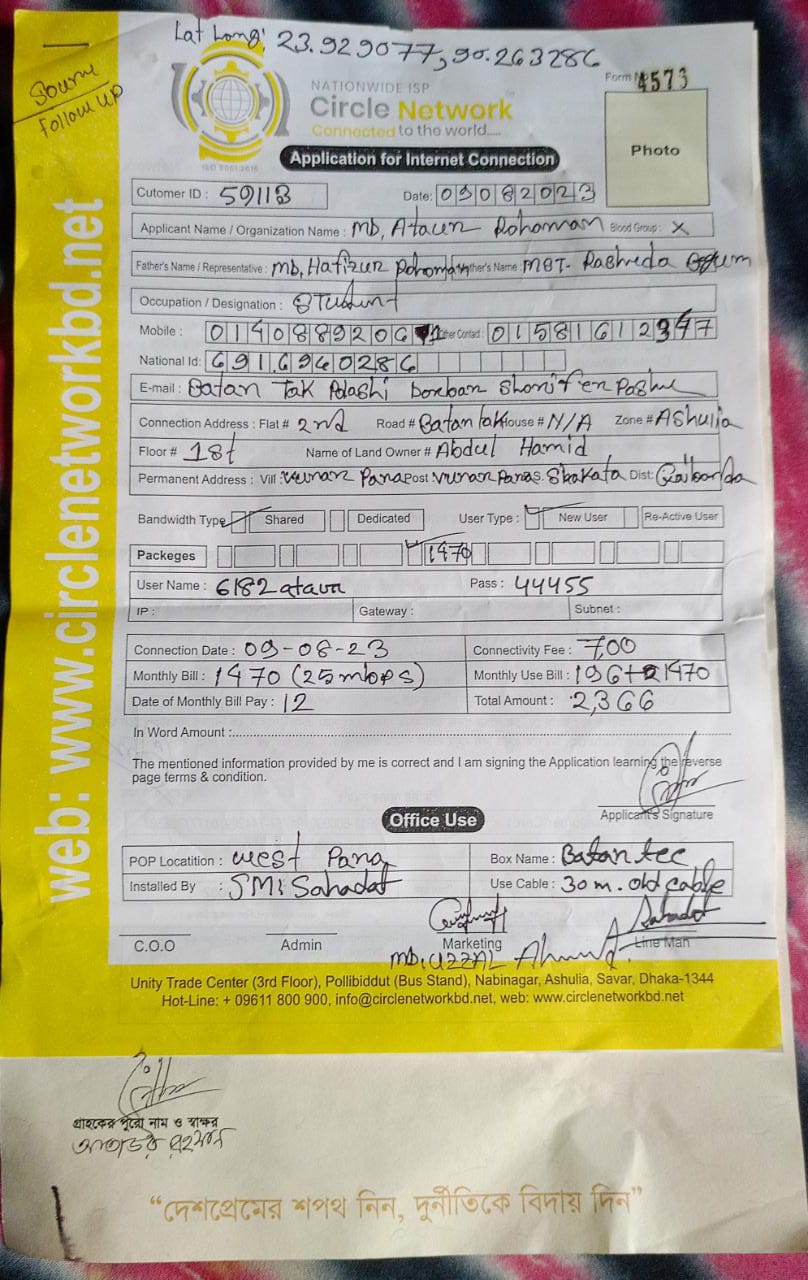 Lat Long: 23.929077, 90.263286
Source
Follow up
NATIONWIDE ISP
Form No 4573
Circle Network
Connected to the world.....
ISO 9001:2015
Photo
Application for Internet Connection
web: www.circlenetworkbd.net
Cutomer ID : 59113 Date: 09082023
Applicant Name / Organization Name : Mb, Ataur Rohoman Blood Group : X
Father's Name / Representative : Mb, Hafizur Rohoman Mother's Name : MST- Rasheda Begum
Occupation / Designation : Student
Mobile : 0140889206 Other Contact : 015816123
National Id: 6916940286
E-mail : Batan Tak Polashi
Connection Address : Flat # 2nd Road # Batan tak House # N/A Zone # Ashulia
Floor # 1st Name of Land Owner # Abdul Hamid
Permanent Address : Vill : Para Post : Dist: Gaibanda
Bandwidth Type Shared Dedicated User Type : New User Re-Active User
Packeges 1470
User Name : 6182 ataur Pass : 44455
IP : Gateway : Subnet :
Connection Date : 09-08-23 Connectivity Fee : 700
Monthly Bill : 1470 (25 mbps) Monthly Use Bill : 196+1470
Date of Monthly Bill Pay : 12 Total Amount : 2,366
In Word Amount :
The mentioned information provided by me is correct and I am signing the Application learning the reverse
page terms & condition.
Applicant's Signature
Office Use
POP Locatition : West Para Box Name : Batan tec
Installed By : SMi Sahadat Use Cable : 30 m. old cable
Sahadat
C.O.O Admin Marketing Line Man
Mb. UZZAL Ahmed
Unity Trade Center (3rd Floor), Pollibiddut (Bus Stand), Nabinagar, Ashulia, Savar, Dhaka-1344
Hot-Line: + 09611 800 900, info@circlenetworkbd.net, web: www.circlenetworkbd.net
গ্রাহকের পুরো নাম ও স্বাক্ষর
আতাউর রহমান
“দেশপ্রেমের শপথ নিন, দুর্নীতিকে বিদায় দিন”